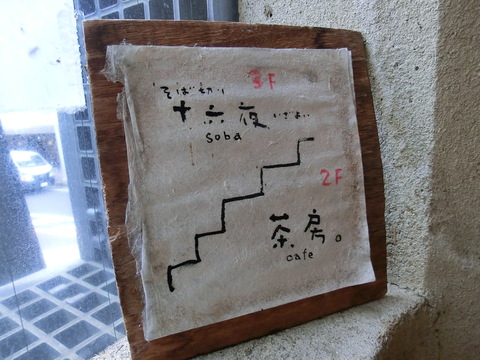 3F
そば切り
十六夜 いざよい
soba
2F
茶房。
cafe